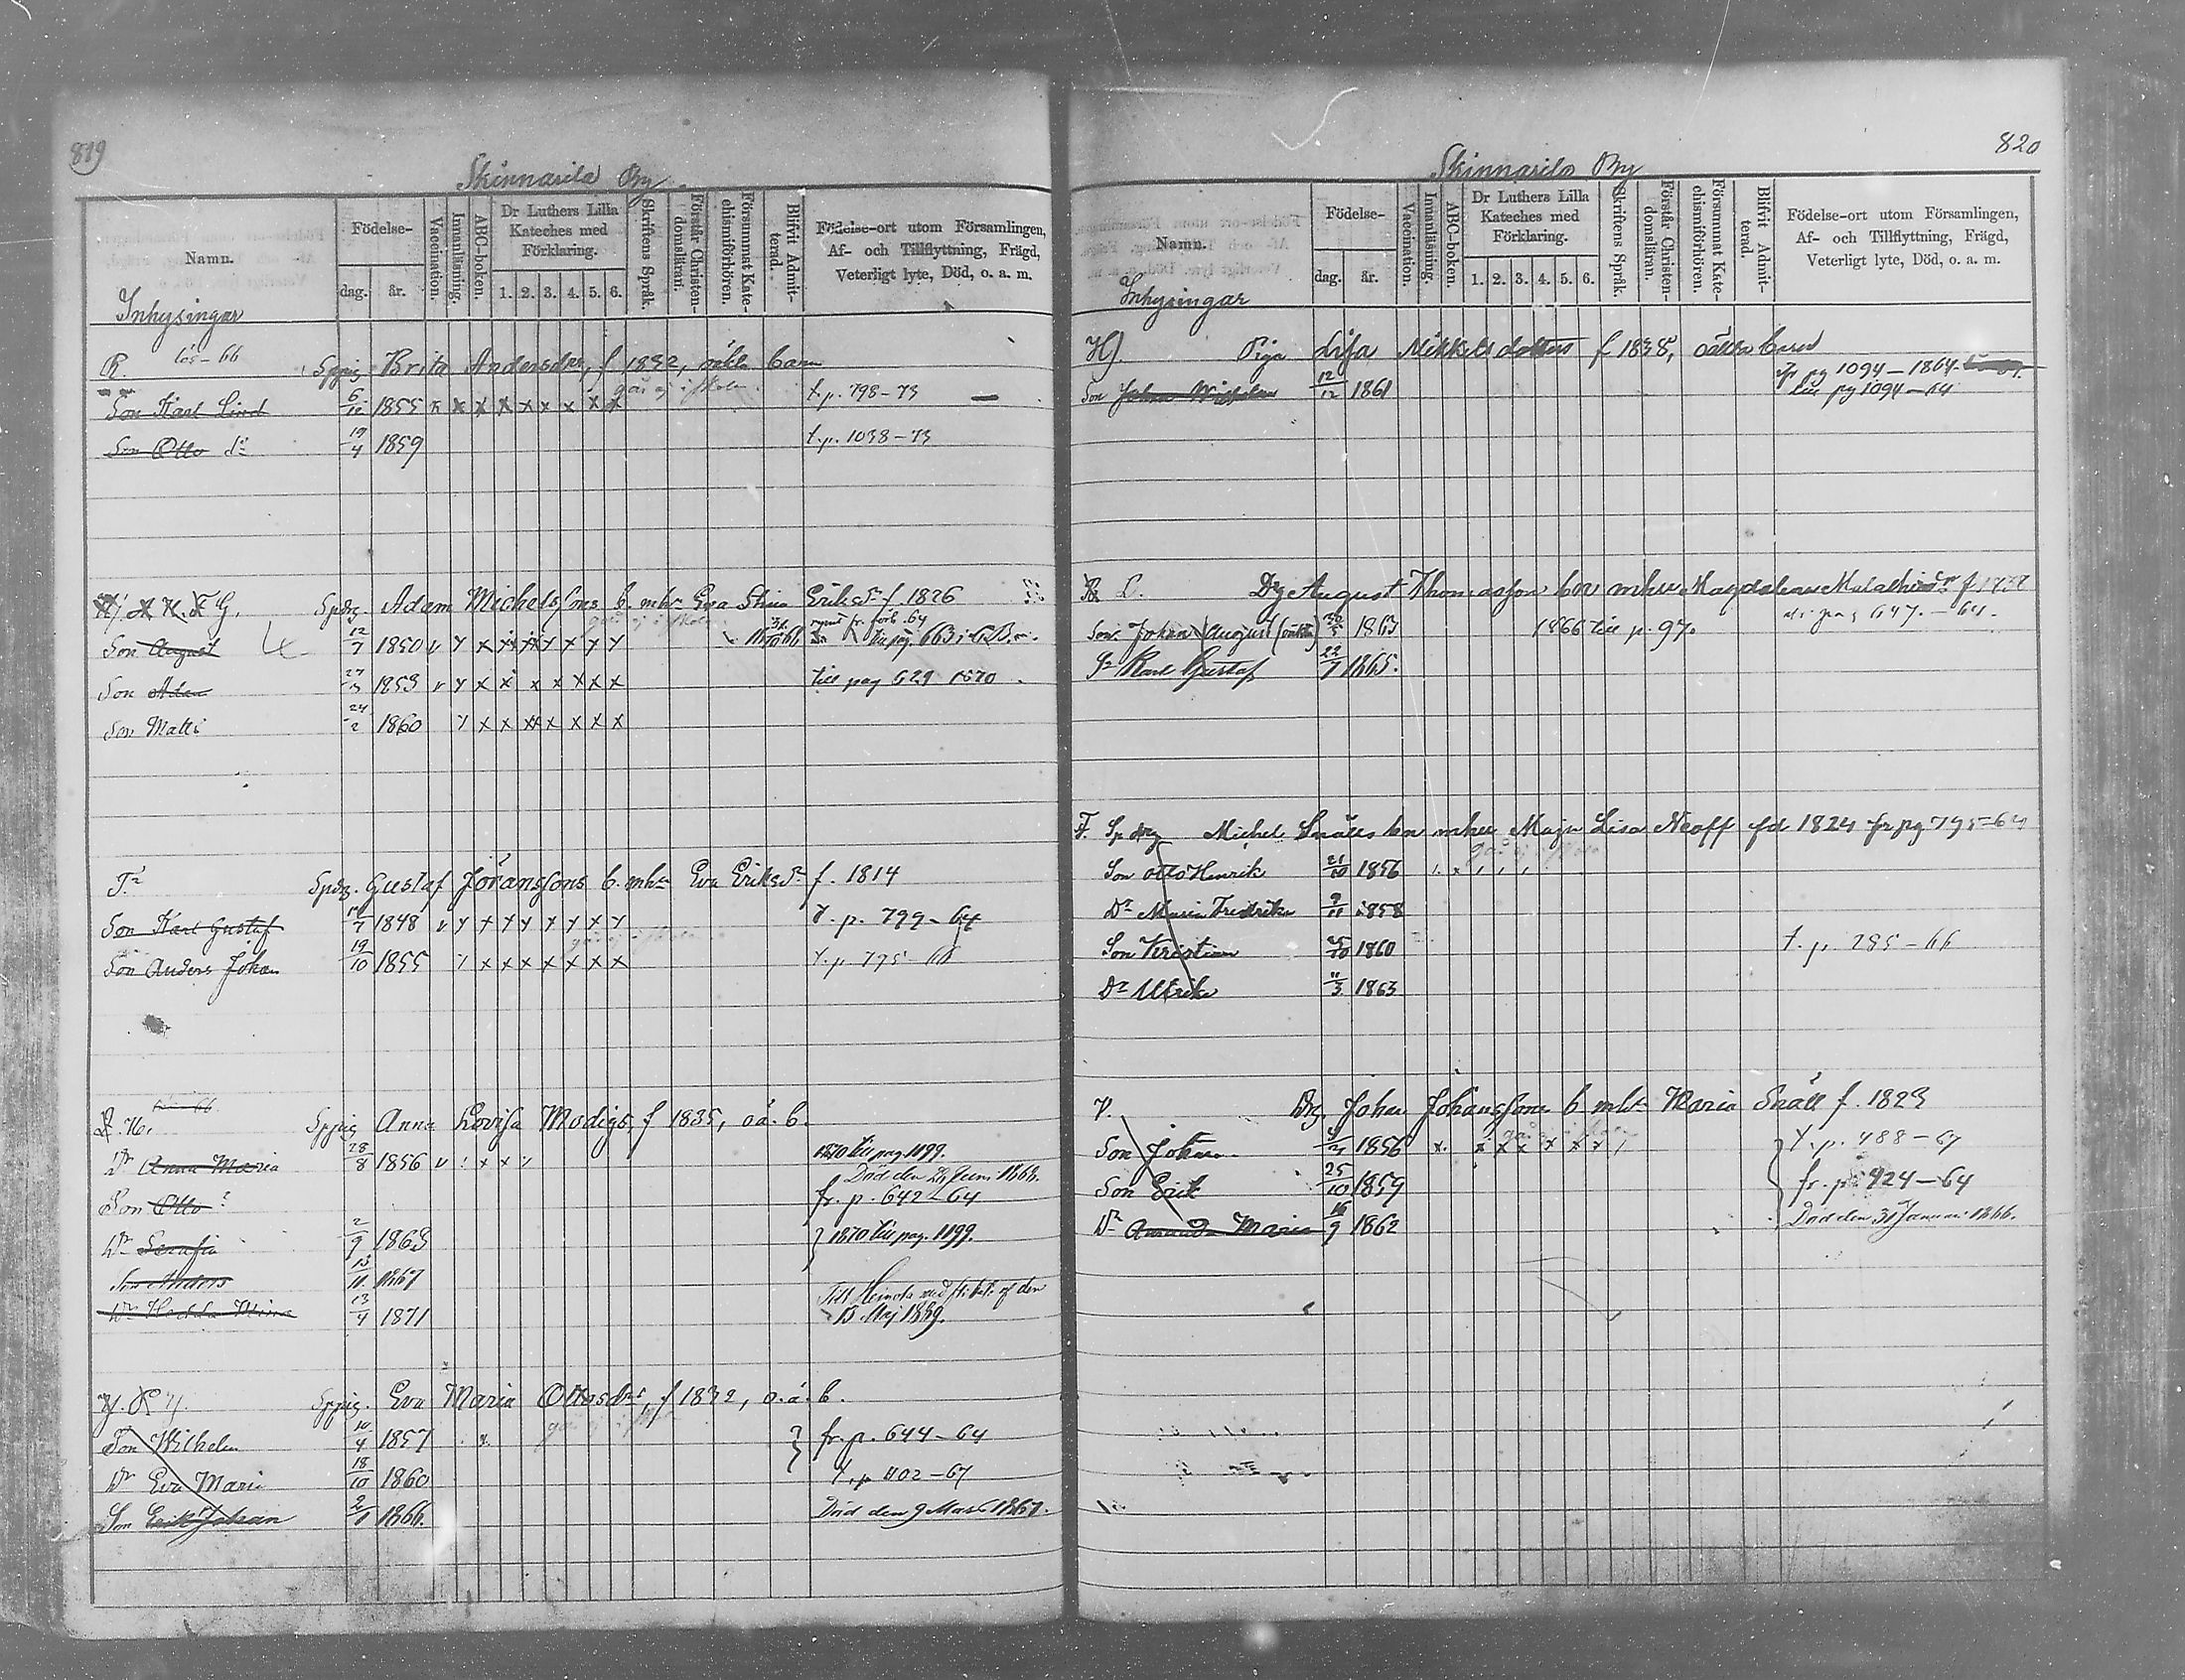 819
Skinnarila By
Namn.
Födelse-
dag.
år.
Vaccination.
Innanläsning.
ABC-boken.
Dr Luthers Lilla Kateches med Förklaring.
1. 2. 3. 4. 5. 6.
Skriftens Språk.
Förstår Christen-domsläran.
Försummat Kate-chismiförhören.
Blifvit Admit-terad.
Födelse-ort utom Församlingen, Af- och Tillflyttning, Frägd, Veterligt lyte, Död, o. a. m.
Inhysingar
R. lös-66 Sppig Brita Andersdr, f 1832, oäkta barn
går ej i skola
Son Karl Lind 6/12 1855 x x x x x x x x x t.p. 798-73
Son Otto 19/4 1859 t.p. 1038-73
G. Spdrg. Adam Michelssons b. mhu Eva Stina Eriksdr f 1826
Son August 12/7 1850 v y x x x y x y y till pag. 663 i C.B.
Son Adam 27 1853 v y x x x x x x x till pag 629 1870
Son Matti 24/2 1860 y x x x x x x x
Spdrg. Gustaf Göranssons b. mhu Eva Eriksdr f. 1814
Son Karl Gustaf 1848 v y x y y x y x y t. p. 799-64
Son Anders Johan 19/10 1855 y x x x x x x x t.p. 795
H. Sppig Anna Lovisa Modigs, f 1835, oä. b.
Dr Anna Maria 28/8 1856 v x x 1870 till pag. 1199.
Son Otto fr. p. 642-64
Dr Serafia 2/9 1863 1870 till pag. 1199.
Son Anders 1867
Dr Hedda Mina 13/4 1871 15 Maj 1889.
Sppig. Eva Maria Ottosdr, f 1832, o.ä.b.
Son Wilhelm 10/4 1857 x fr. p. 644-64
Dr Eva Maria 18/10 1860 t. p 402-67
Son Erik Johan 2/1 1866. Död den 9 Mars 1867.
820
Skinnarila By
Namn.
Födelse-
dag.
år.
Vaccination.
Innanläsning.
ABC-boken.
Dr Luthers Lilla Kateches med Förklaring.
1. 2. 3. 4. 5. 6.
Skriftens Språk.
Förstår Christen-domsläran.
Försummat Kate-chismiförhören.
Blifvit Admit-terad.
Födelse-ort utom Församlingen, Af- och Tillflyttning, Frägd, Veterligt lyte, Död, o. a. m.
Inhysingar
H). Piga Lisa Mikkelsdotters f 1838, oäkta barn
fr pg 1094-1864
Son Johan Wilhelm 12/12 1861 till pg 1094-64
L. Drg August Thomasson b. mhu Magdalena f 1838
pag 647.-64.
Son Johan August (oäkta) 1863 1866 till p. 97.
Karl Gustaf 22/7 1865.
F. Sp drg Michel Snälls bn mhu Maja Lisa Neoff fd 1824 fr pg 795-64
Son Otto Henrik 21/10 1856
Dr Maria Fredrika 9/11 1858
Son Kristian 1860 t. p. 285-66
Dr Ulrika 11/3 1863
Drg Johan Johanssons b mhu Maria Snäll f. 1823
Son Johan 1856 x. x x x x x x t. p. 488-67
Son Erik 25/10 1859 fr. p. 424-64
Dr Amanda Maria 16/9 1862 Död den 31 Januari 1866.